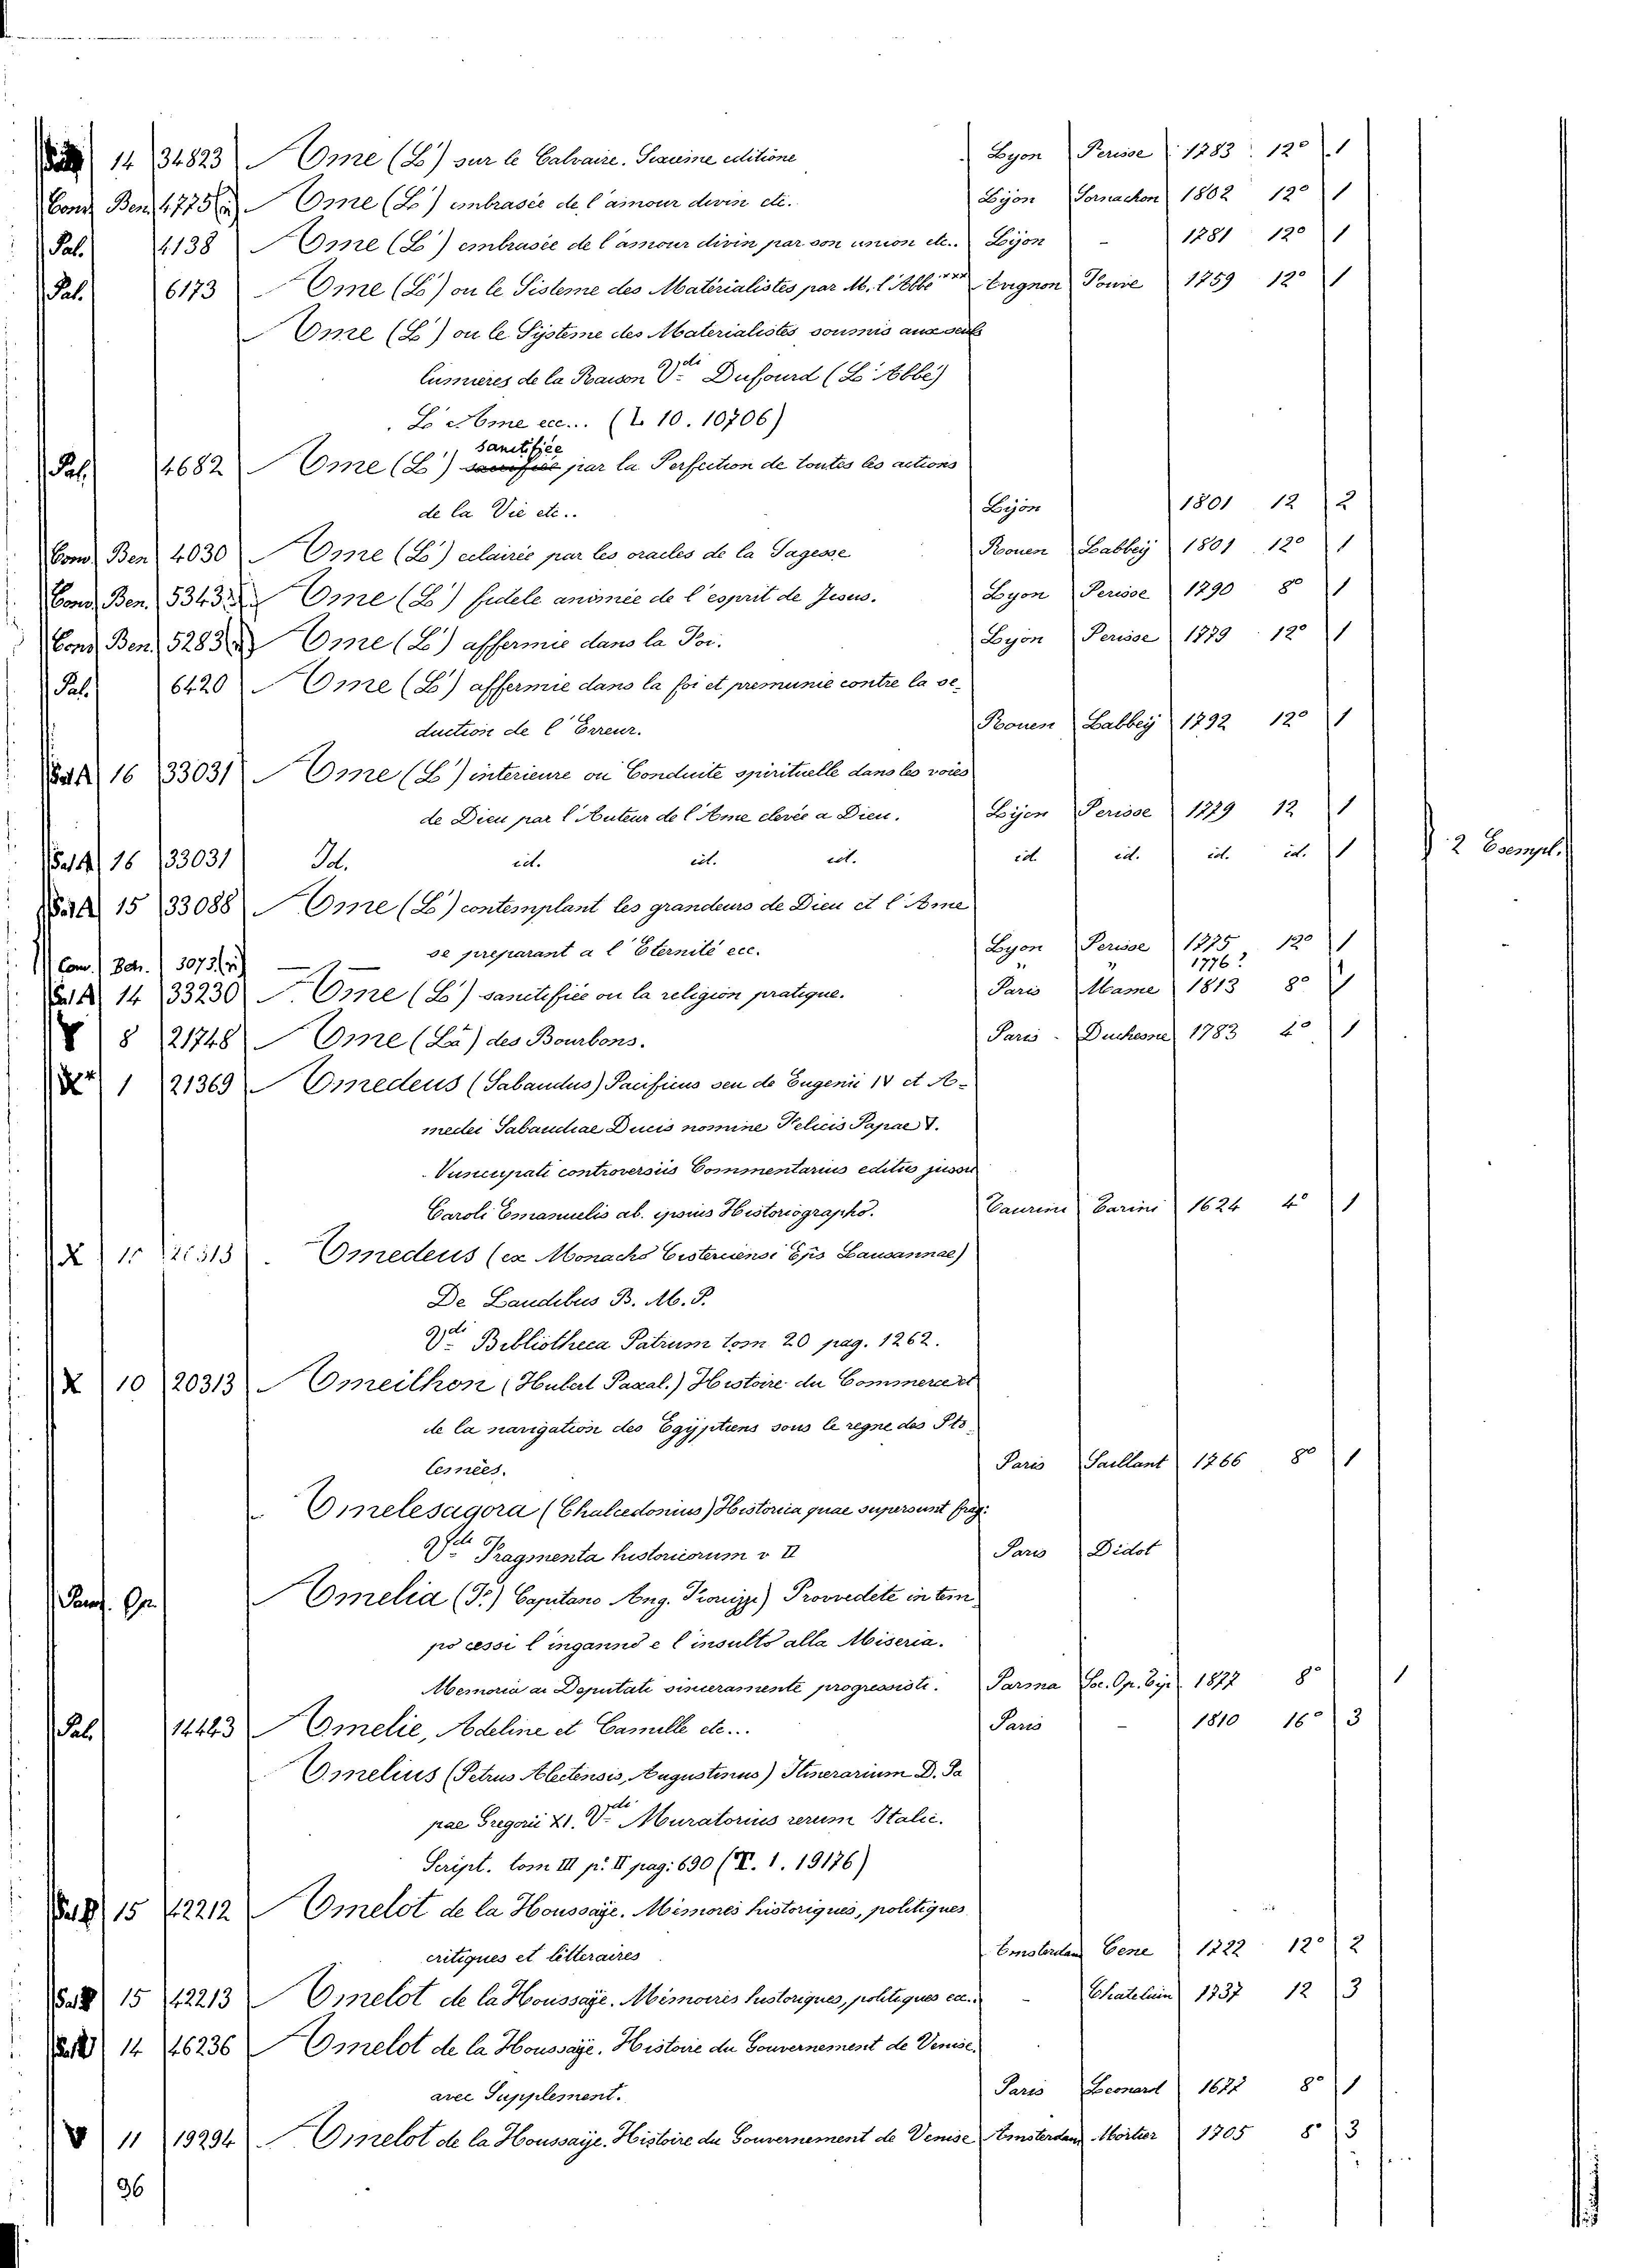 14 34823 Ame (L') sur le Calvaire. Sixieme editione Lyon Perisse 1783 12° 1
Cond Ben. 4775 Ame (L') embrasée de l'amour divin etc. Lyon Tornachon 1802 12° 1
Pal. 4138 Ame (L') embrasée de l'amour divin par son union etc.. Lyon - 1781 12° 1
Pal. 6173 Ame (L') ou le Sisteme des Matérialistes par M. l'Abbé *** Avignon 1759 12° 1
Ame (L') ou le Systeme des Materialistes soumis aux seules
lumieres de la Raison V.di Dufourd (L'Abbé)
L'Ame ecc... (L. 10. 10706)
Pal. 4682 Ame (L') sanctifiée par la Perfection de toutes les actions
de la Vie etc.. Lyon 1801 12 2
Cond Ben 4030 Ame (L') eclairée par les oracles de la Sagesse Rouen Labbey 1801 12° 1
Cond Ben. 5343 Ame (L') fidele animée de l'esprit de Jesus. Lyon Perisse 1790 8° 1
Cond Ben. 5283 Ame (L') affermie dans la Foi. Lyon Perisse 1779 12° 1
Pal. 6420 Ame (L') affermie dans la foi et premunie contre la se-
duction de l'Erreur. Rouen Labbey 1792 12° 1
16 33031 Ame (L') interieure ou Conduite spirituelle dans les voies
de Dieu par l'Auteur de l'Ame elevée a Dieu. Lyon Perisse 1779 12 1
16 33031 Id. id. id. id. id. id. id. id. 1 } 2 Esempl.
15 33088 Ame (L') contemplant les grandeurs de Dieu et l'Ame
se preparant a l'Eternité ecc. Lyon Perisse 1775 12° 1
Conv. Ben. 3073 (n) — — " " 1776? 1
14 33230 Ame (L') sanctifiée ou la religion pratique. Paris Mame 1813 8° 1
8 21748 Ame (La) des Bourbons. Paris - Duchesne 1783 4° 1
1 21369 Amedeus (Sabaudus) Pacificus seu de Eugenii IV et A-
medei Sabaudiae Ducis nomine Felicis Papae V.
Nuncupati controversiis Commentarius editus jussu
Caroli Emanuelis ab. ipsius Historiographo. Taurini Tarini 1624 4° 1
X 20313 Amedeus (ex Monacho Cisterciensi Eps Lausannae)
De Laudibus B. M. V.
V.di Bibliotheca Patrum tom 20 pag. 1262.
X 10 20313 Ameilhon (Hubert Pascal.) Histoire du Commerce et
de la navigation des Egyptiens sous le regne des Pto-
lemées. Paris Saillant 1766 8° 1
Amelesagora (Chalcedonius) Historica quae supersunt frag:
V.di Fragmenta historicorum v II Paris Didot
Amelia (F.) Capitano Ang. Provvedete in tem
po cessi l'inganno e l'insulto alla Miseria.
Memoria ai Deputati sinceramente progressisti. Parma Soc. Op. Tip. 1877 8° 1
Pal. 14443 Amelie, Adeline et Camille etc... Paris - 1810 16° 3
Amelius (Petrus Alectensis, Augustinus) Itinerarium D. Pa
pae Gregorii XI. V.di Muratorius rerum Italic.
Script. tom III p. II pag: 690 (V. 1. 19176)
15 42212 Amelot de la Houssaye. Mimores historiques, politiques
critiques et litteraires Amsterdam Cene 1722 12° 2
15 42213 Amelot de la Houssaye. Mémoires historiques, politiques ecc. - Chatelain 1737 12 3
14 46236 Amelot de la Houssaye. Histoire du Gouvernement de Venise,
avec Supplement. Paris Leonard 1677 8° 1
V 11 19294 Amelot de la Houssaye. Histoire du Gouvernement de Venise Amsterdam Mortier 1705 8° 3
96